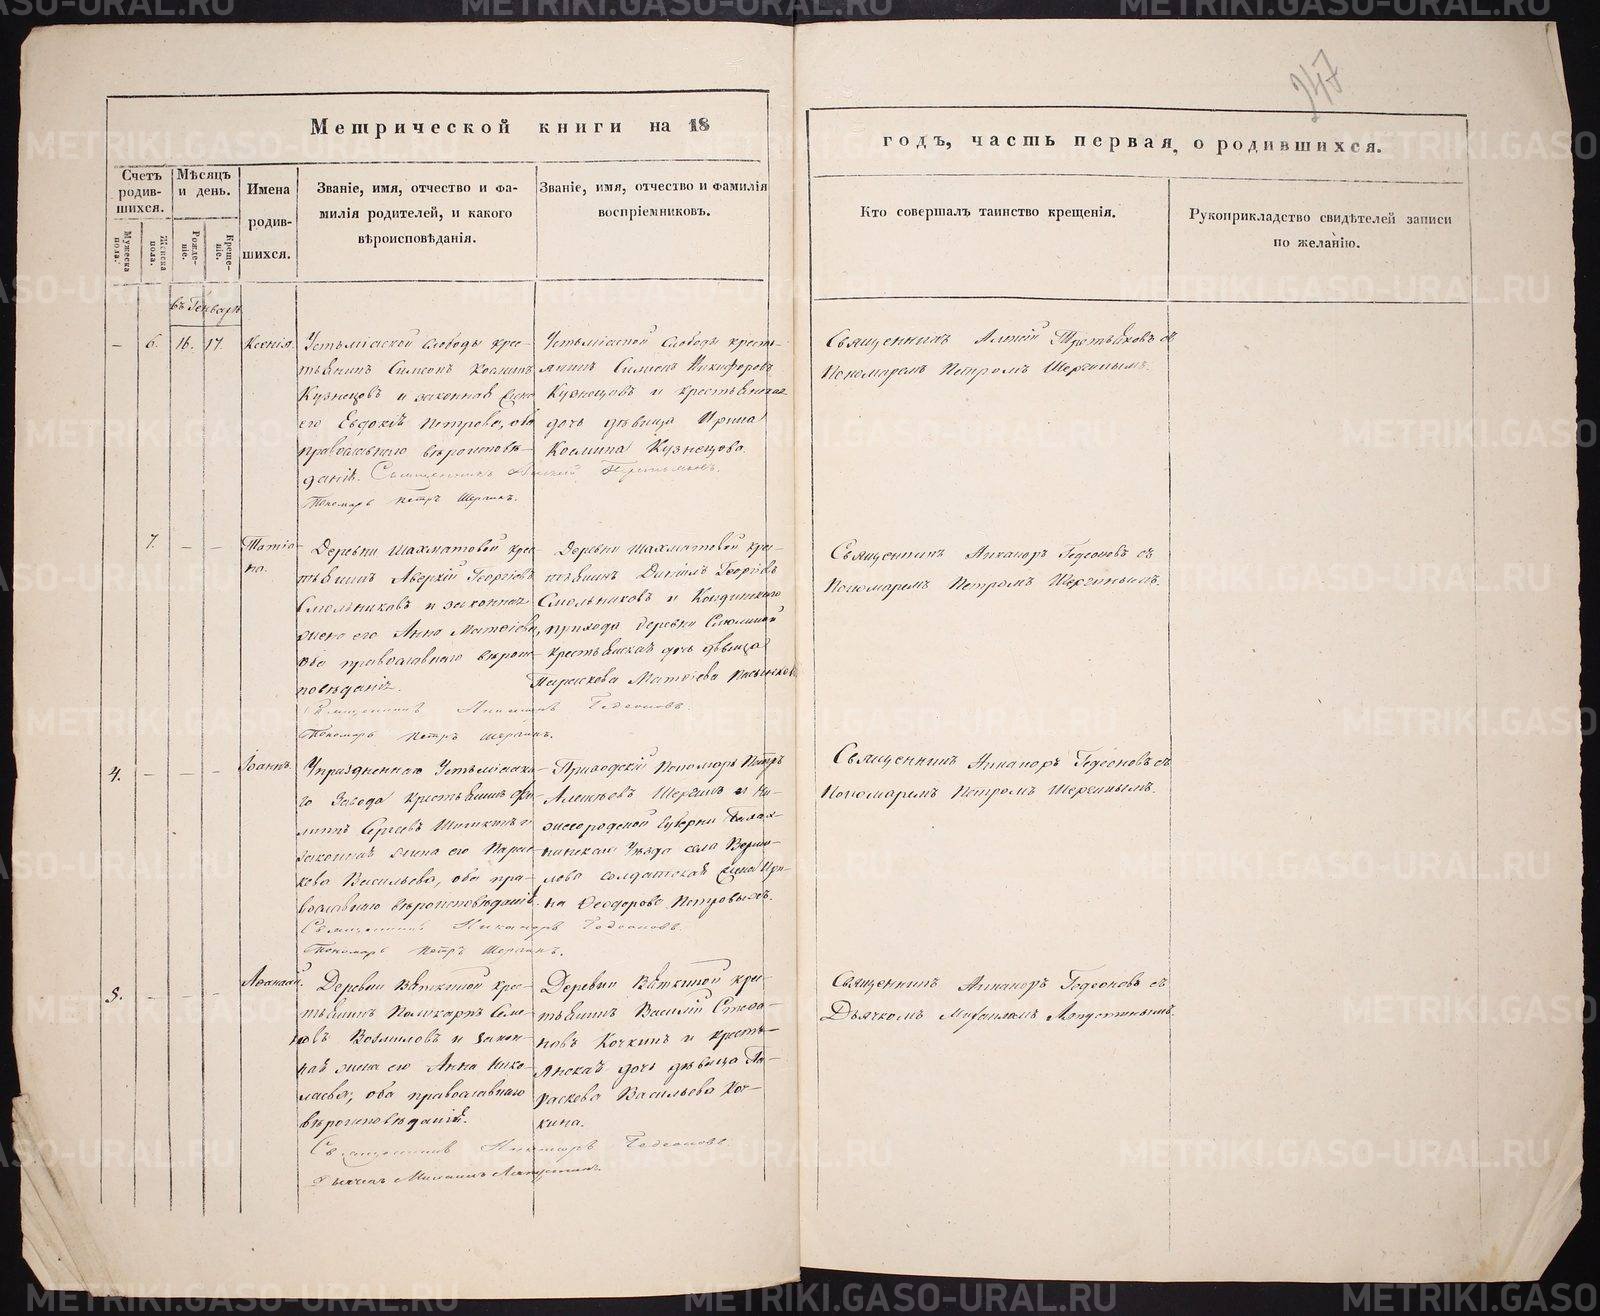 METRIKI.GASO-URAL.RU
247
Метрической книги на 18
годъ, часть первая, о родившихся.
Счетъ родив-шихся.
Мужеска пола.
Женска пола.
Мѣсяцъ и день.
Рожде-ніе.
Креще-ніе.
Имена родив-шихся.
Званіе, имя, отчество и фа-
милія родителей, и какого
вѣроисповѣданія.
Званіе, имя, отчество и фамилія
воспріемниковъ.
Кто совершалъ таинство крещенія.
Рукоприкладство свидѣтелей записи
по желанію.
въ Генварѣ
6. 16. 17. Ксенія.
Устьмiасской слободы крес-
тьянинъ Симеонъ Козминъ
Кузнецовъ и законная жена
его Евдокія Петрова, оба
православнаго вѣроисповѣ-
данія. Священникъ Третьяковъ.
Пономарь Петръ Шергинъ.
Устьмiасской слободы кресть-
янинъ Симеонъ Никифоровъ
Кузнецовъ и крестьянская
дочь дѣвица Ирина
Козмина Кузнецова.
Священникъ Третьяковъ съ
Пономаремъ Петромъ Шергинымъ.
7. Татiа-
на.
Деревни Шахматовой крес-
тьянинъ Аверкій Георгіевъ
Смольниковъ и законная
жена его Анна Матѳіева,
оба православнаго вѣроис-
повѣданія.
Священникъ Никаноръ Гедеоновъ.
Пономарь Петръ Шергинъ.
Деревни Шахматовой крес-
тьянинъ Даніилъ Георгіевъ
Смольниковъ и
прихода деревни
крестьянская дочь дѣвица
Параскева Матѳіева
Священникъ Никаноръ Гедеоновъ съ
Пономаремъ Петромъ Шергинымъ.
4. Іоаннъ.
Упраздненнаго Устьмiасска-
го Завода крестьянинъ Фи-
липпъ Сергѣевъ и
законная жена его Парас-
кева Васильева, оба пра-
вославнаго вѣроисповѣданія.
Священникъ Никаноръ Гедеоновъ.
Пономарь Петръ Шергинъ.
Приходскій Пономарь Петръ
Алексѣевъ Шергинъ и Ни-
жегородской Губерніи Балах-
нинскаго Уѣзда села
солдатская жена Ири-
на Ѳеодорова Петровыхъ.
Священникъ Никаноръ Гедеоновъ съ
Пономаремъ Петромъ Шергинымъ.
5. Аѳанасій.
Деревни Вяткиной крес-
тьянинъ Поликарпъ Семе-
новъ Возмиловъ и закон-
ная жена его Анна Нико-
лаева, оба православнаго
вѣроисповѣданія.
Священникъ Никаноръ Гедеоновъ.
Дьячекъ Михаилъ
Деревни Вяткиной крес-
тьянинъ Василій Степа-
новъ Кочкинъ и кресть-
янская дочь дѣвица Па-
раскева Васильева Коч-
кина.
Священникъ Никаноръ Гедеоновъ съ
Дьячкомъ Михаиломъ